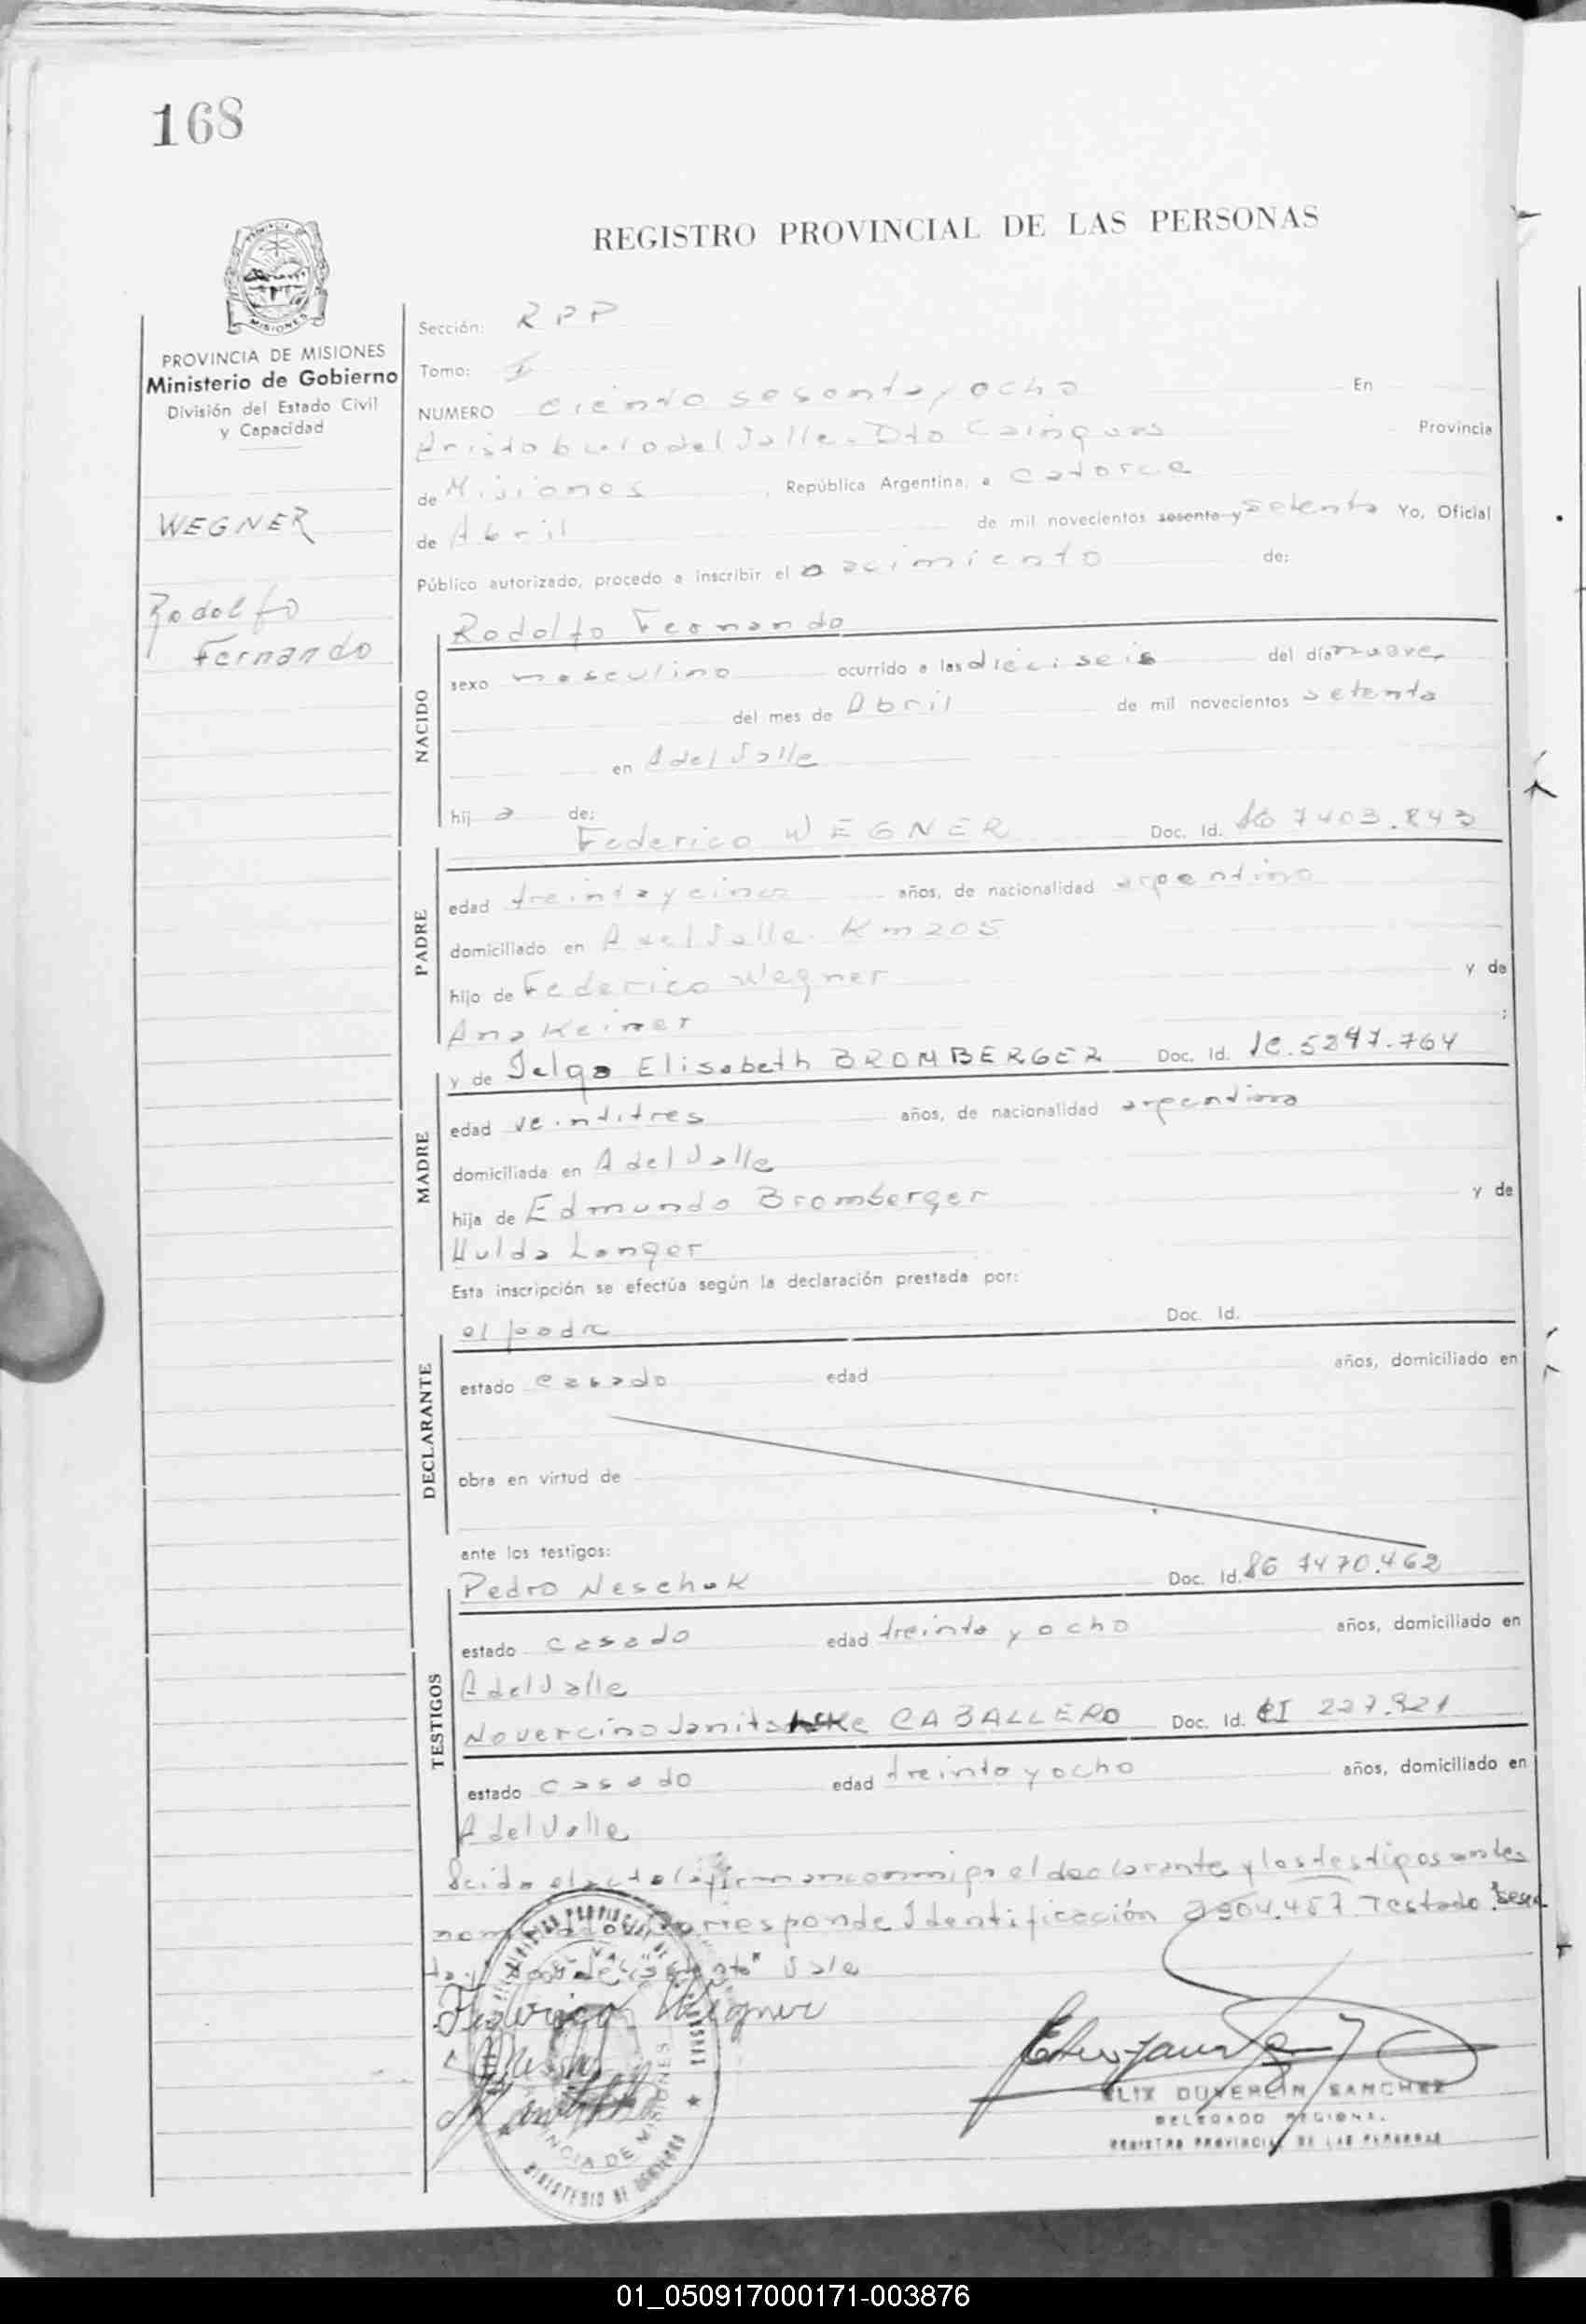 168
REGISTRO PROVINCIAL DE LAS PERSONAS
MISIONES
PROVINCIA DE MISIONES
Ministerio de Gobierno
División del Estado Civil
y Capacidad
WEGNER
Rodolfo
Fernando
Sección: RPP
Tomo: I
NUMERO ciento sesenta y ocho En
Aristobulo del Valle - Dto Cainguas Provincia
de Misiones, República Argentina, a catorce
de Abril de mil novecientos sesenta y setenta Yo, Oficial
Público autorizado, procedo a inscribir el nacimiento de:
NACIDO
Rodolfo Fernando
sexo masculino ocurrido a las dieciseis del día nueve
del mes de Abril de mil novecientos setenta
en A del Valle
hij o de:
Federico WEGNER Doc. Id. 7403.843
PADRE
edad treinta y cinco años, de nacionalidad argentina
domiciliado en A del Valle. Km 205
hijo de Federico Wegner y de
Ana Keiner :
y de Ielga Elisabeth BROMBERGER Doc. Id. 5297.764
MADRE
edad veintitres años, de nacionalidad argentina
domiciliada en A del Valle
hija de Edmundo Bromberger y de
Hulda Langer
Esta inscripción se efectúa según la declaración prestada por:
el padre Doc. Id.
DECLARANTE
estado casado edad años, domiciliado en
obra en virtud de
ante los testigos:
Pedro Neschuk Doc. Id. 7470.462
TESTIGOS
estado casado edad treinta y ocho años, domiciliado en
A del Valle
Novercino CABALLERO Doc. Id. CI 227.821
estado casado edad treinta y ocho años, domiciliado en
A del Valle
Leida el acta la firman conmigo el declarante y los testigos antes
corresponde Identificación Testado "sesen
Vale
Federico Wegner
PROVINCIA DE MISIONES
MINISTERIO DE GOBIERNO
ELIX DUVERLIN SANCHEZ
DELEGADO REGIONAL
REGISTRO PROVINCIAL DE LAS PERSONAS
01_050917000171-003876